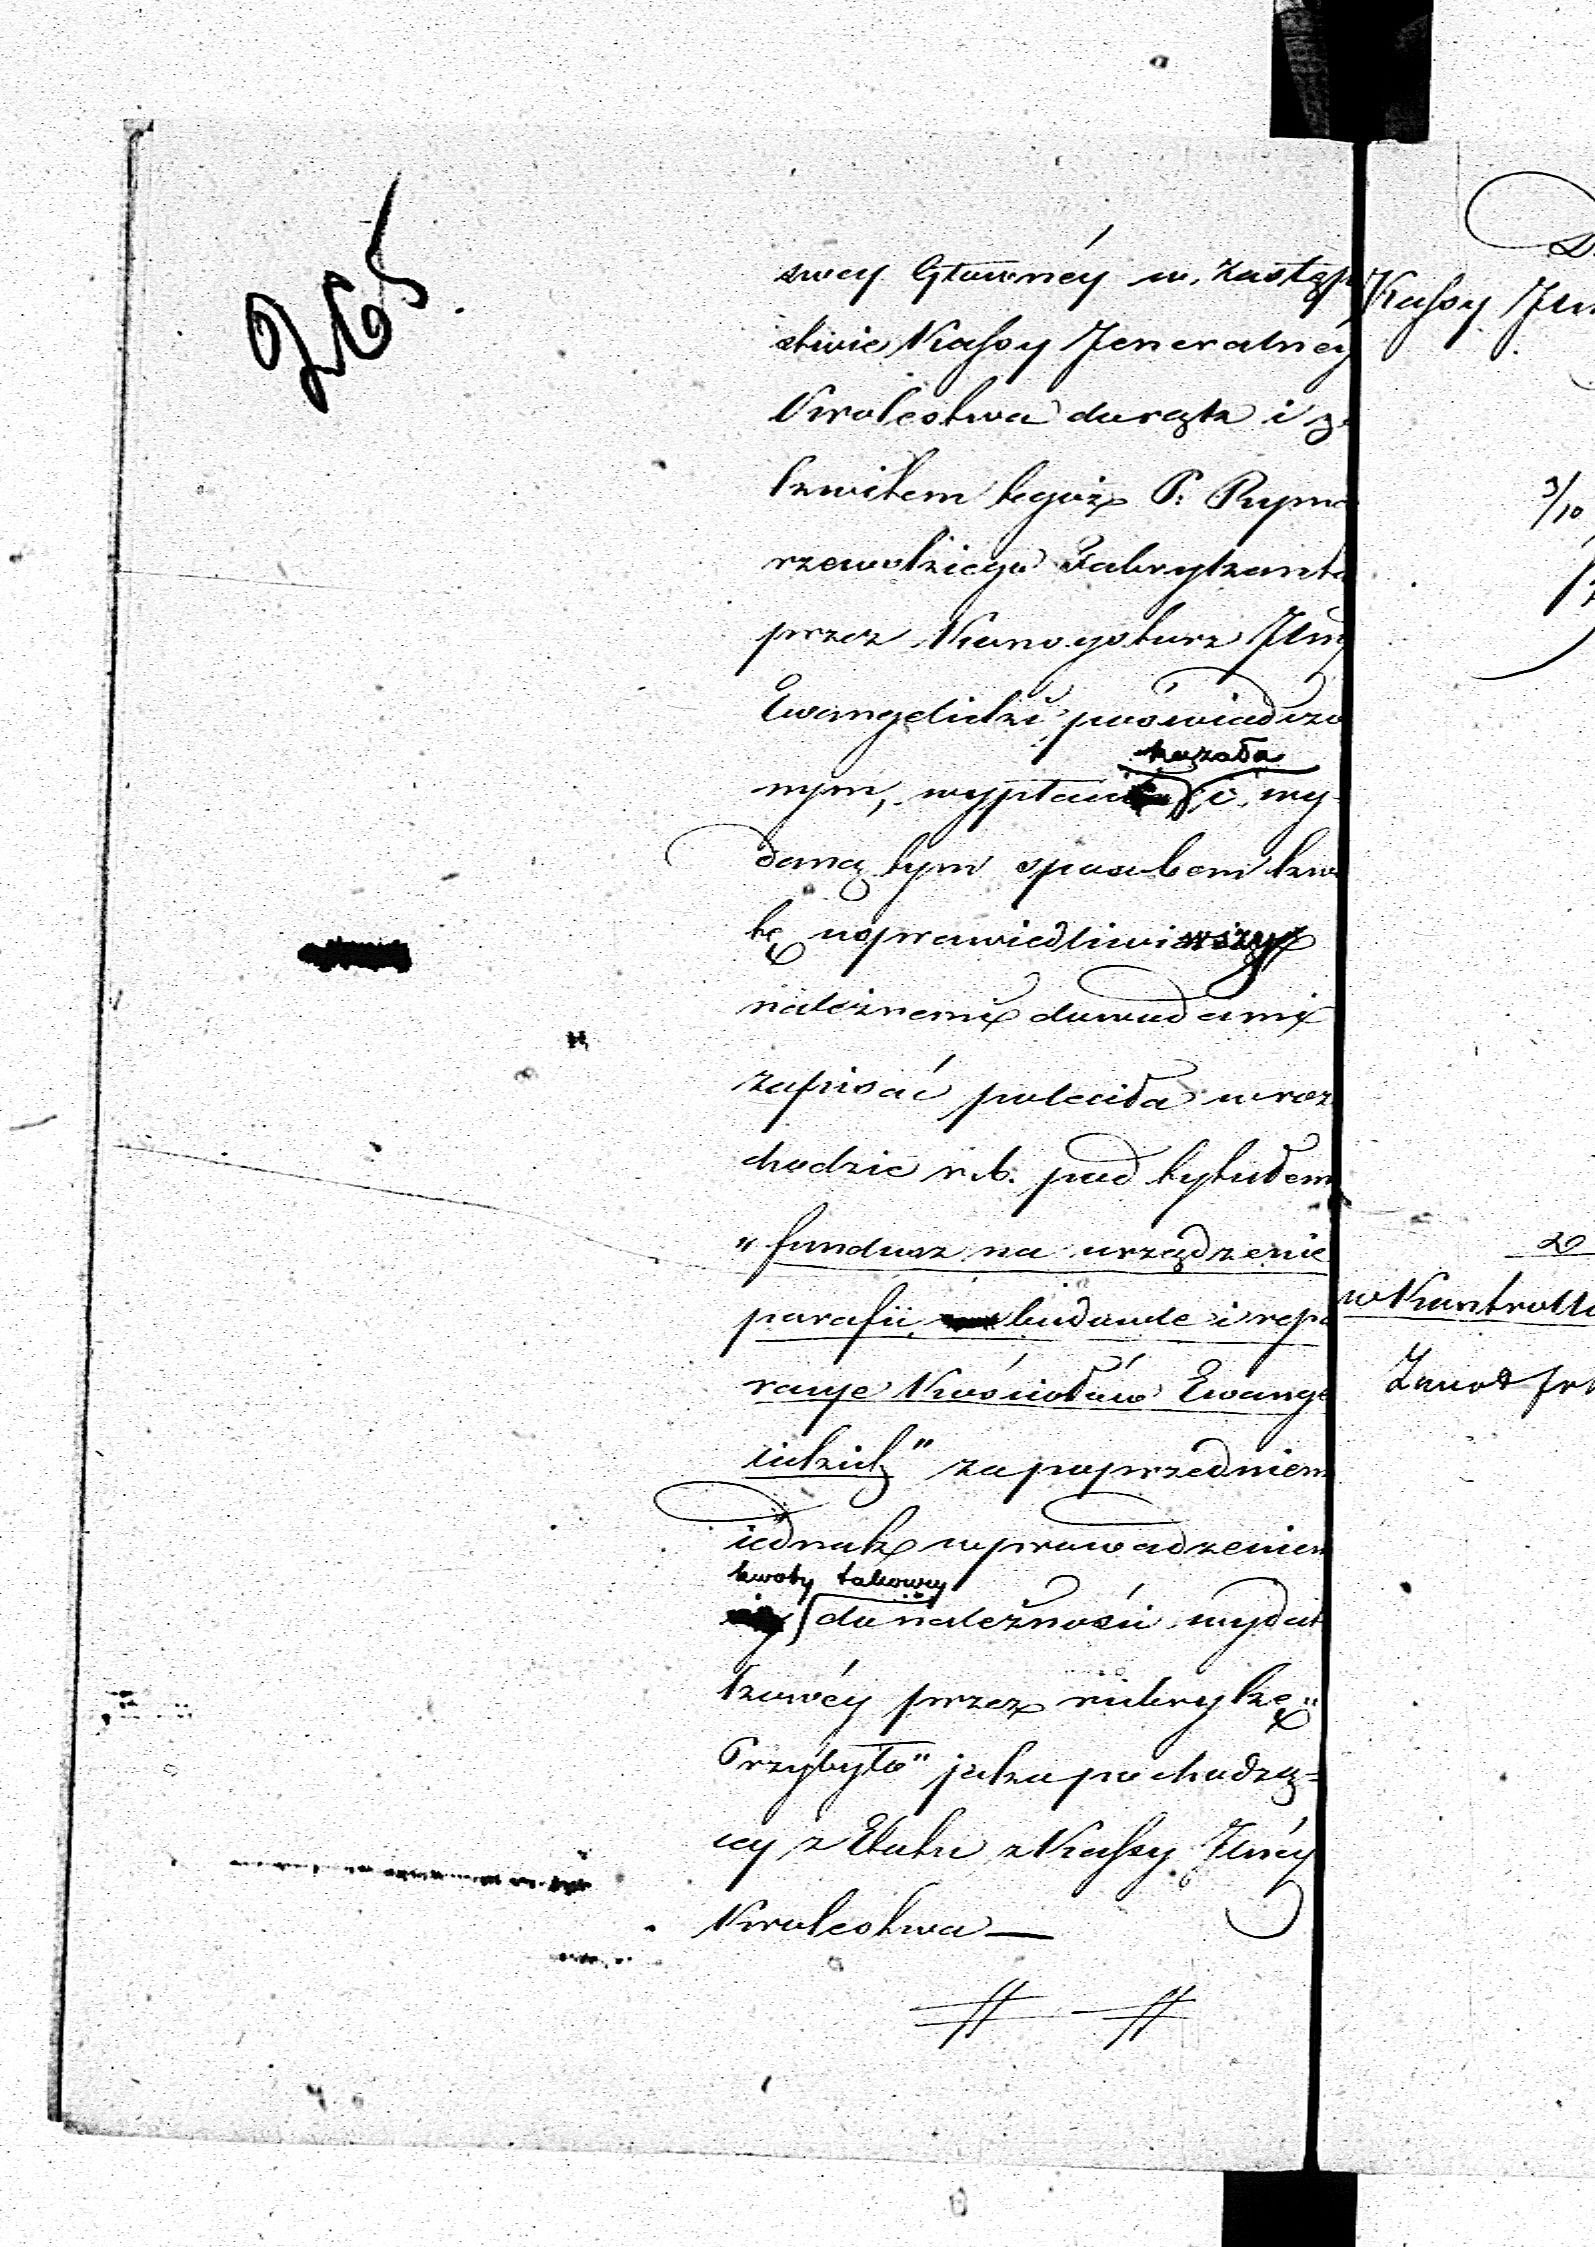 265.
swey Główney w. Zastęp
stwie Kassy Jeneralnéy
Krolestwa do rąk i za
kwitem tegoż P: Ryma
rzewskiego Fabrykanta
przez Konsystorz Jlny
Ewangelicki poświadczo
nym, wypłacić kazała i wy-
daną tym sposobem kwo
tę usprawiedliwiwszy
należnemi dowodami
zapisać poleciła w roz
chodzie r. b. pod tytułem
"fundusz na urządzenie
parafii, budowle i repa
racye Kościołów Ewange
lickich" za poprzedniem
iednak wprowadzeniem
kwoty takowey
do należności wydat
kowéy przez rubrykę "
Przybyło" jako pochodzą=
cy z Etatu z Kassy Jlnéy
Krolestwa —
Kassy Jln
3/10
w Kontrolli